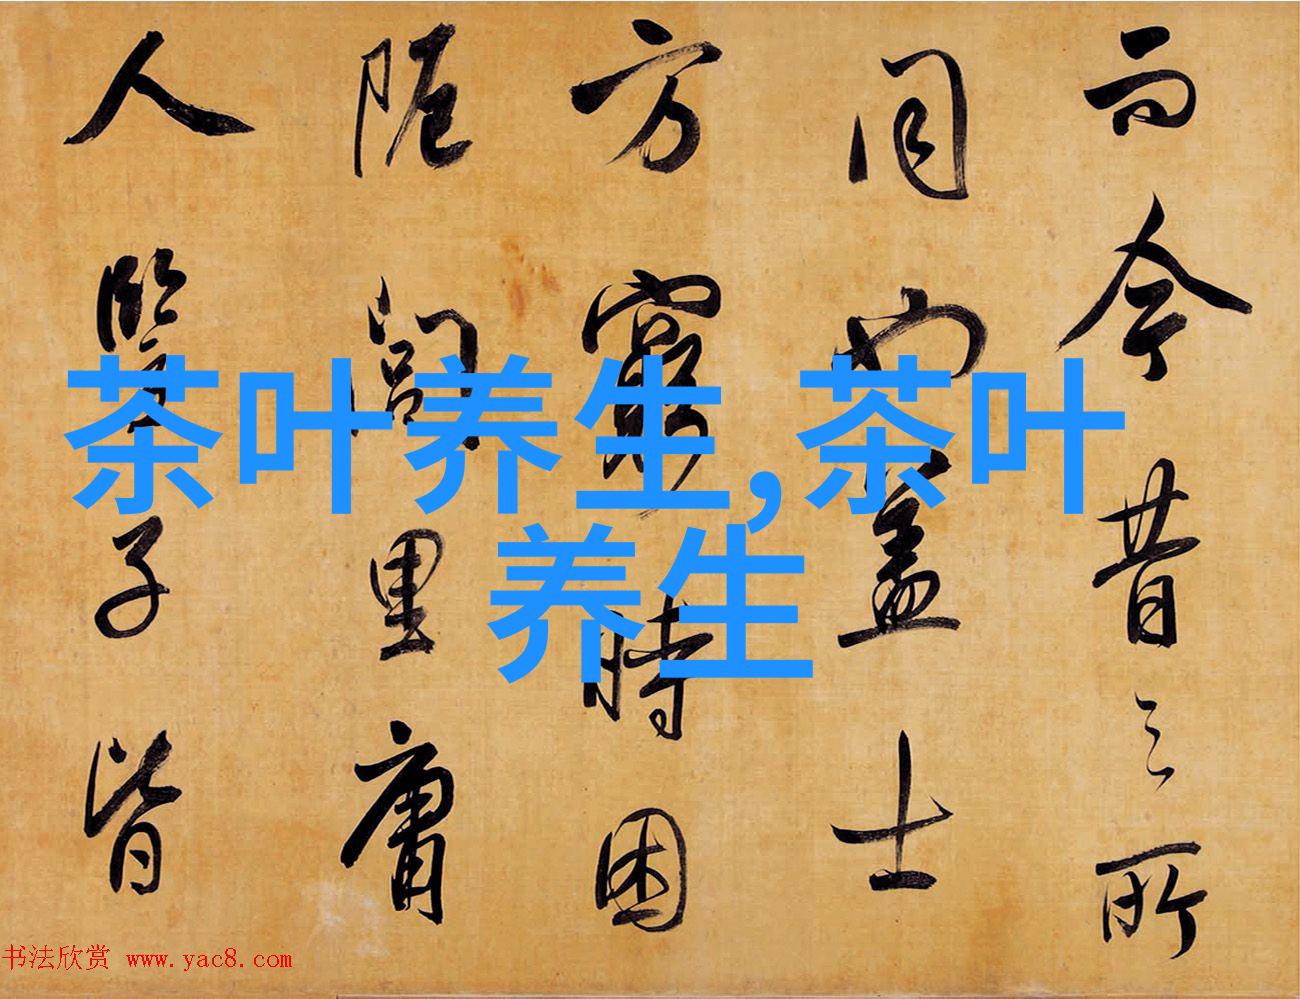 而今昔之所
同也盖士
方窮時困
阨閭里庸
人豎子皆
茶叶养生,茶叶
养生
书法欣赏 www.yac8.com